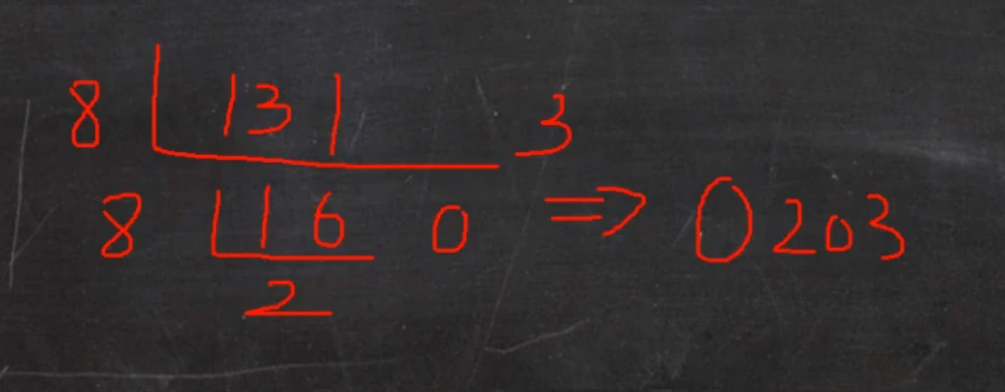 8 131 3
8 16 0 => 0203
2